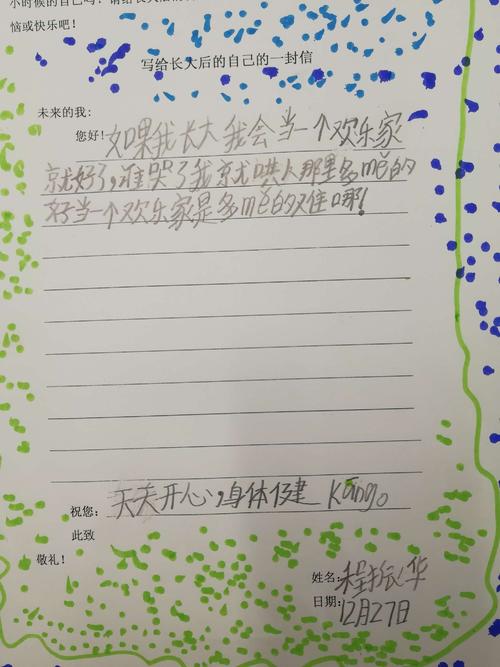 小时候的自己吗？请给长大后
恼或快乐吧！
写给长大后的自己的一封信
未来的我：
您好！如果我长大我会当一个欢乐家
就好了，谁哭了我就哄人那里多mé的
好当一个欢乐家是多mé的难哪！
祝您：天天开心，身体健 kāng。
此致
敬礼！
姓名：程振华
日期：12月27日